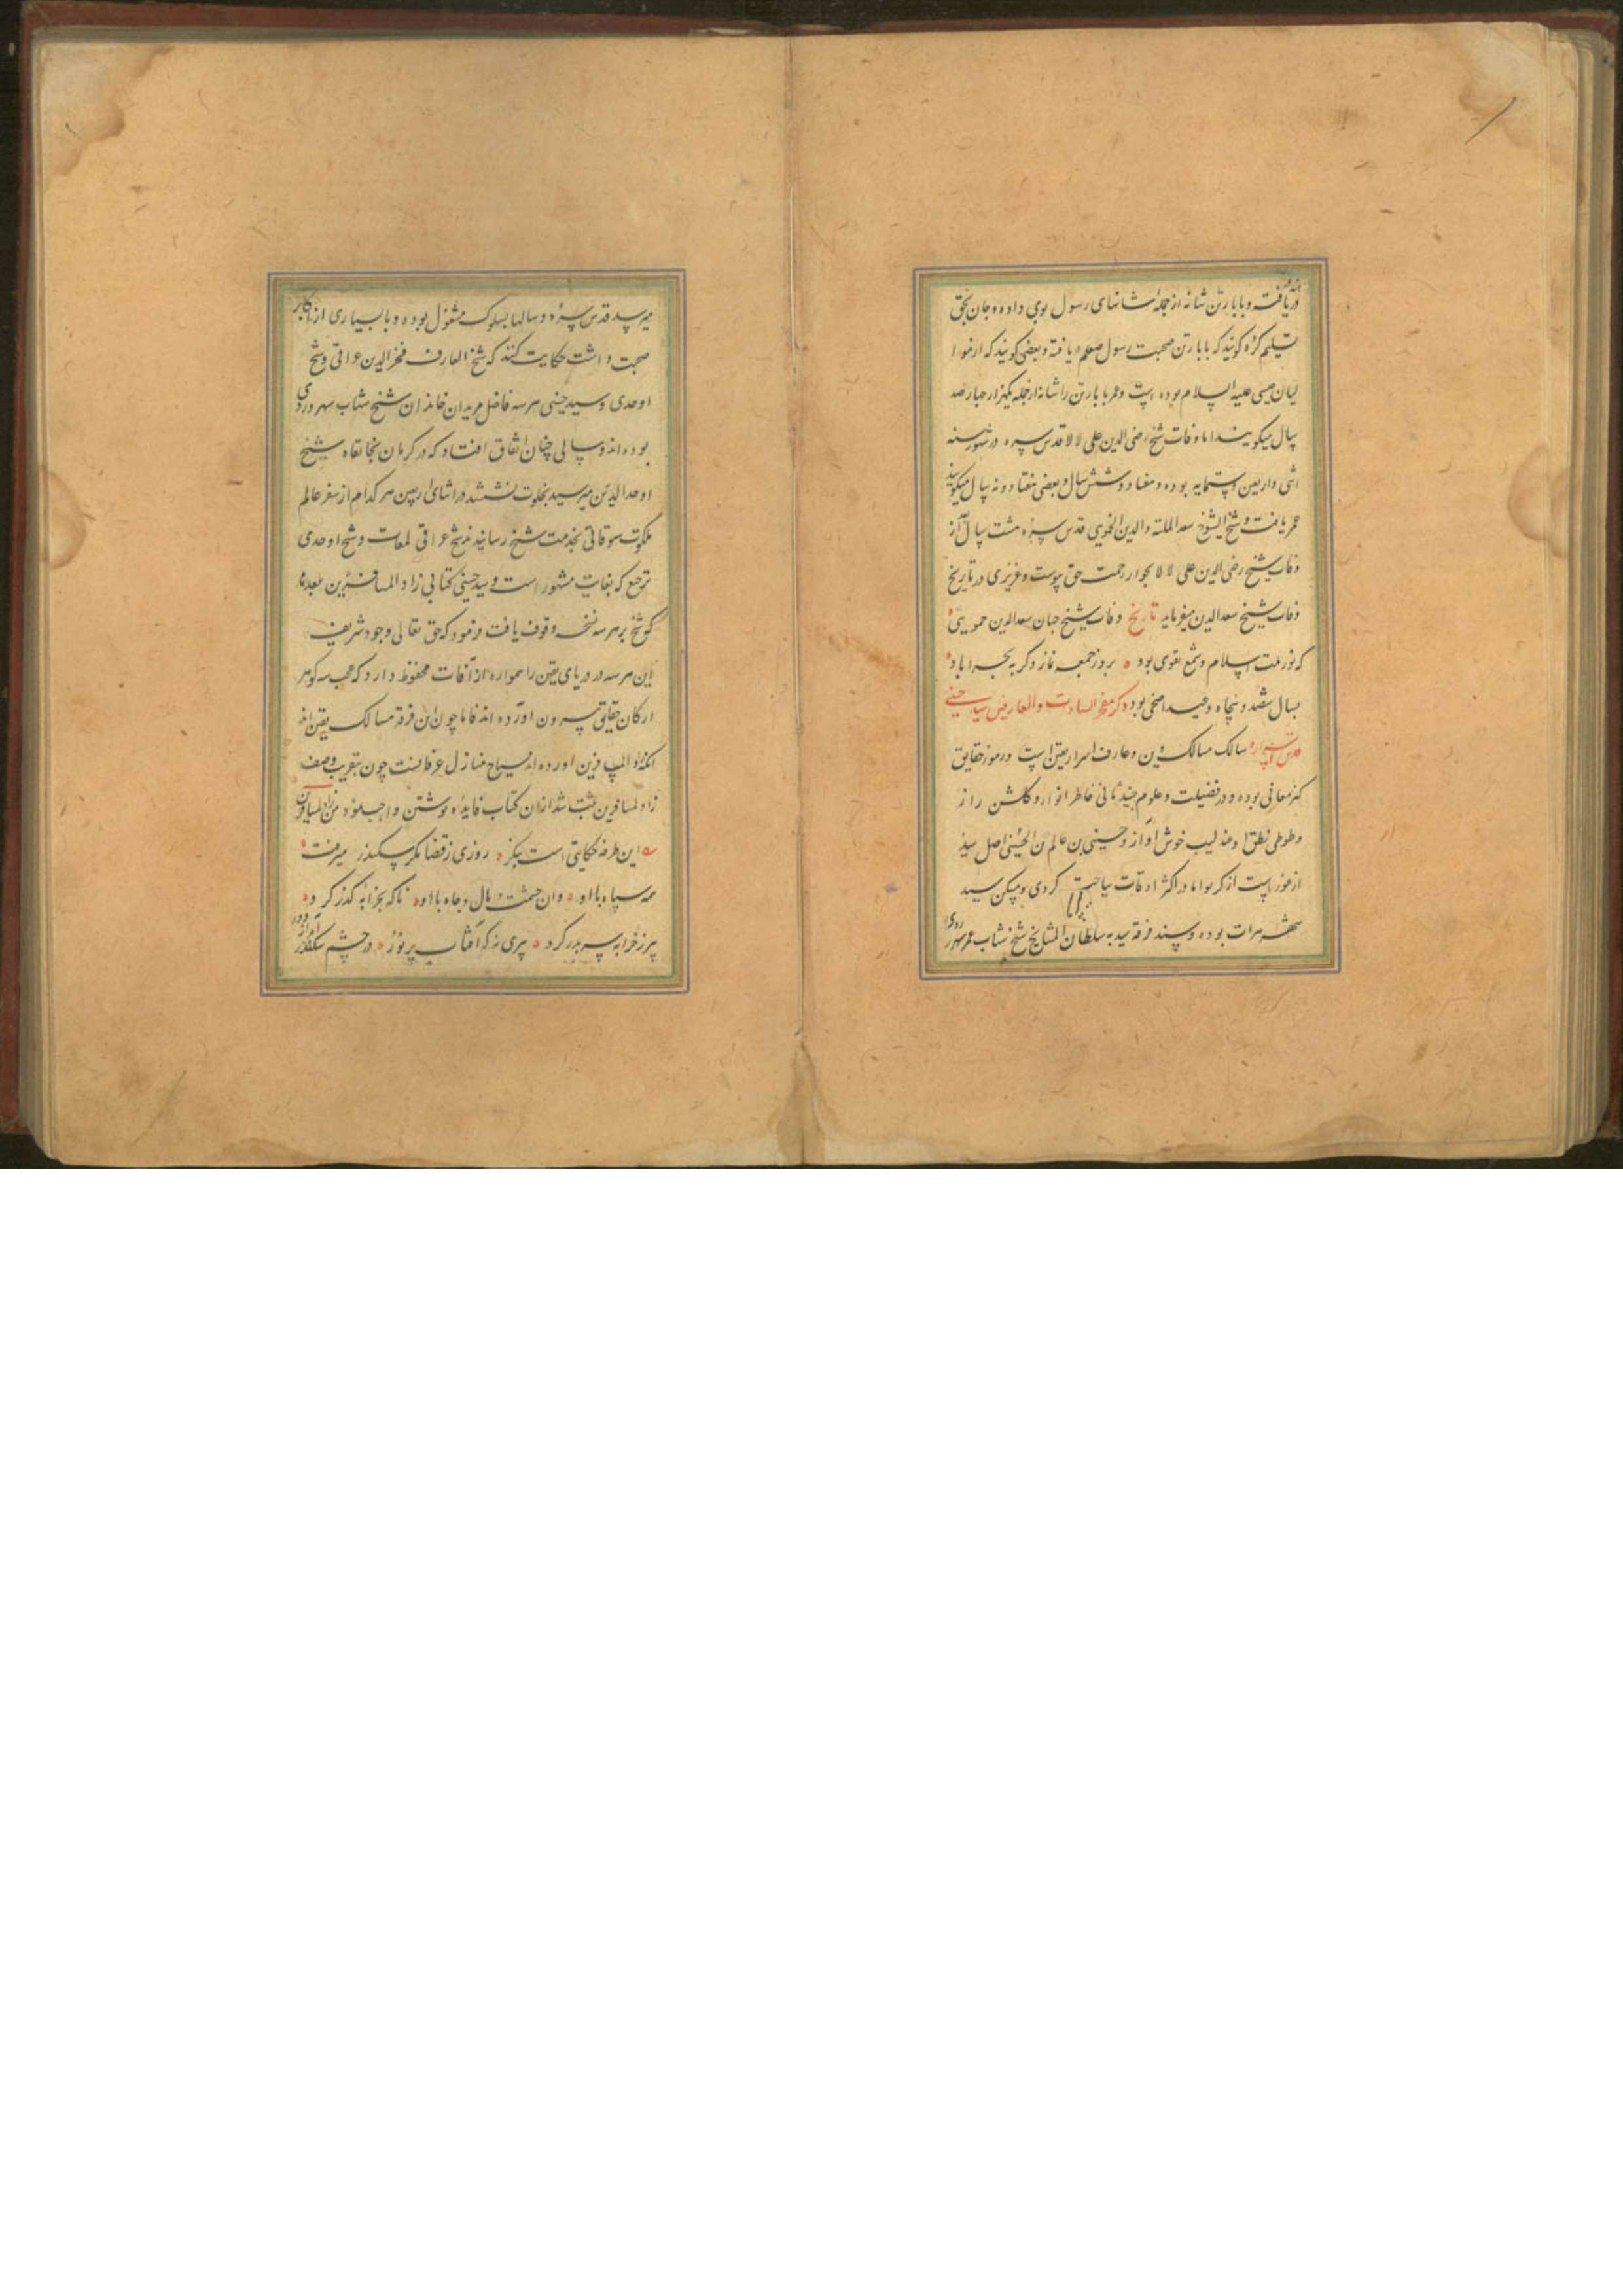 دریافته و بابا رتن شانه از جمله شانهای رسول بوی داده و جان بحق
تسلیم کرده گویند که بابا رتن صحبت رسول صلعم یافته و بعضی گویند که از حوا
لیان عیسی علیه السلام بوده است و عمر بابا رتن را شانه از جمله یکهزار و چهار صد
سال میگویند اما وفات شیخ رضی الدین علی لالا قدس سره در شهور سنه
اثنی و اربعین و ستمایه بوده و هفتاد و شش سال و بعضی هفتاد و نه سال میگویند
عمر یافت و شیخ الشیوخ سعد الملة والدین الحموی قدس سره هشت سال از
وفات شیخ رضی الدین علی لالا بجوار رحمت حق پیوست و عزیزی در تاریخ
وفات شیخ سعد الدین میفرماید تاریخ وفات شیخ جهان سعد الدین حمویی
که نور ملت اسلام و شمع تقوی بود بروز جمعه نماز دگر به بحراباد
بسال ششصد و پنجاه و عید اضحی بود ذکر مفخر السادات والعارفین سید حسینی
قدس اسراره سالک مسالک دین و عارف اسرار یقین است و رموز حقایق
کنز معانی بوده و در فضیلت و علوم جنید ثانی خاطر انوار او گلشن راز
و طوطی نطق او عندلیب خوش آواز و حسینی بن عالم بن الحسینی اصل سید
از غور است از کریوا اما در اکثر اوقات سیاحت کردی و مسکن سید
شهر هرات بوده و سند خرقه سید به سلطان المشایخ شیخ شهاب عمر سهروردی
میرسد قدس سره و سالها بسلوک مشغول بوده و با بسیاری از اکابر
صحبت داشت حکایت کنند که شیخ العارف فخر الدین عراقی و شیخ
اوحدی و سید حسینی هر سه فاضل مریدان خاندان شیخ شهاب سهروردی
بوده اند و سالی چنان اتفاق افتاد که در کرمان بخانقاه شیخ
اوحد الدین میر سید بخلوت نشستند در اثنای اربعین هر کدام از سفر عالم
ملکوت سوقاتی بخدمت شیخ رسانیدند شیخ عراقی لمعات و شیخ اوحدی
ترجیع که بغایت مشهور است و سید حسینی کتابی زاد المسافرین بعد ما
که شیخ بر هر سه نسخه وقوف یافت فرمود که حق تعالی وجود شریف
این هر سه در دریای یقین را همواره از آفات محفوظ دارد که عجب سه گوهر
از کان حقایق بیرون آورده اند فاما چون این فرقه مسالک یقین اند
آنکه زاد المسافرین آورده اند سیاح منازل عرفانست چون تقریب وصف
زاد المسافرین ثبت شد از آن کتاب فایده نوشتن واجب نمود من زاد المسافرین
این طرفه حکایتی است بنگر روزی ز قضا مگر سکندر میرفت
همه سپاه با او وان حشمت و مال و جاه با او ناگه بخرابه گذر کرد
پیر ز خرابه سر بدر کرد پیری نه که آفتاب پر نور در چشم سکندر آمد از دور